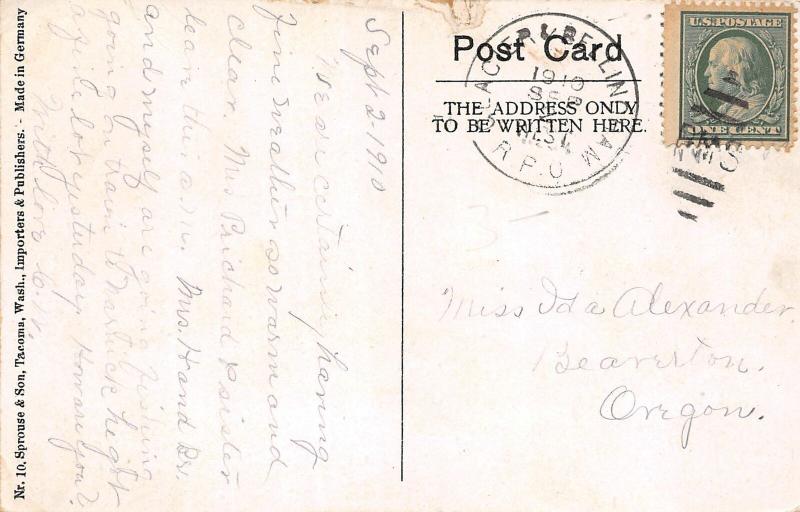 Post Card
THE ADDRESS ONLY
TO BE WRITTEN HERE.
U.S. POSTAGE
ONE CENT
1910
SEP
R.P.O.
Miss Ida Alexander.
Beaverton.
Oregon.
Sept 2-1910
We are certainly having
fine weather so warm and
clear Mrs Prichard & sister
leave this a.m. Mrs. Hand Dr.
and myself are going fishing
going on train to
yesterday. How are you?
With love
Nr. 10, Sprouse & Son, Tacoma, Wash., Importers & Publishers. - Made in Germany